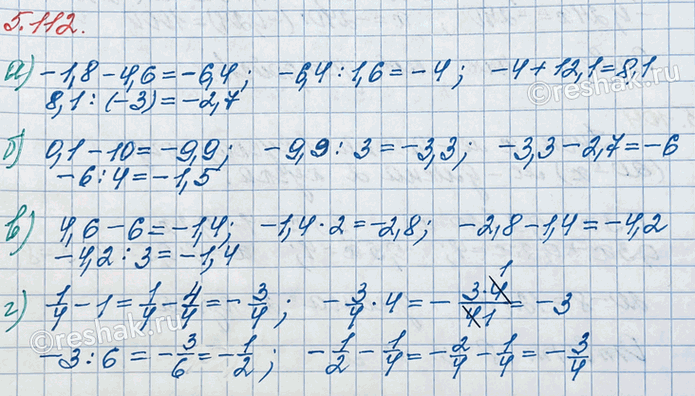 5.112.
а) -1,8 - 4,6 = -6,4; -6,4 : 1,6 = -4; -4 + 12,1 = 8,1
8,1 : (-3) = -2,7
б) 0,1 - 10 = -9,9; -9,9 : 3 = -3,3; -3,3 - 2,7 = -6
-6 : 4 = -1,5
в) 4,6 - 6 = -1,4; -1,4 · 2 = -2,8; -2,8 - 1,4 = -4,2
-4,2 : 3 = -1,4
г) 1/4 - 1 = 1/4 - 4/4 = -3/4; -3/4 · 4 = - 3·4 1/4 1 = -3
-3 : 6 = -3/6 = -1/2; -1/2 - 1/4 = -2/4 - 1/4 = -3/4
©reshak.ru